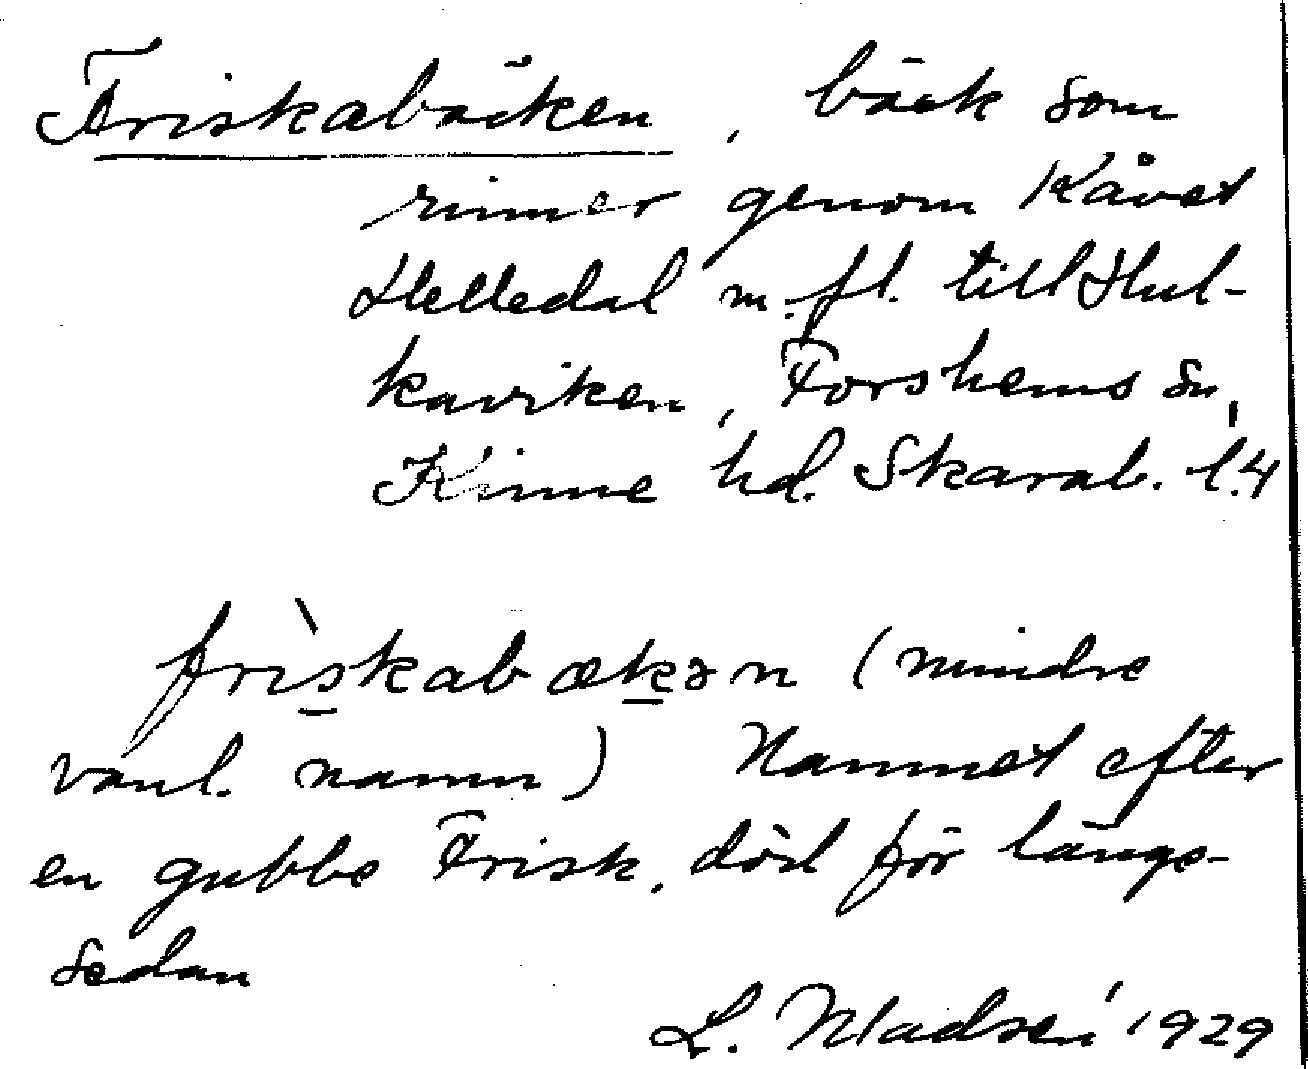 Friskabäcken, bäck som
rinner genom Kåvet
Helledal m.fl. till Hul-
kaviken, Forshems sn,
Kinne hd. Skarab. l.4
friskabækən (mindre
vanl. namn) Namnet efter
en gubbe Frisk, död för länge-
sedan
L. Madsén 1929